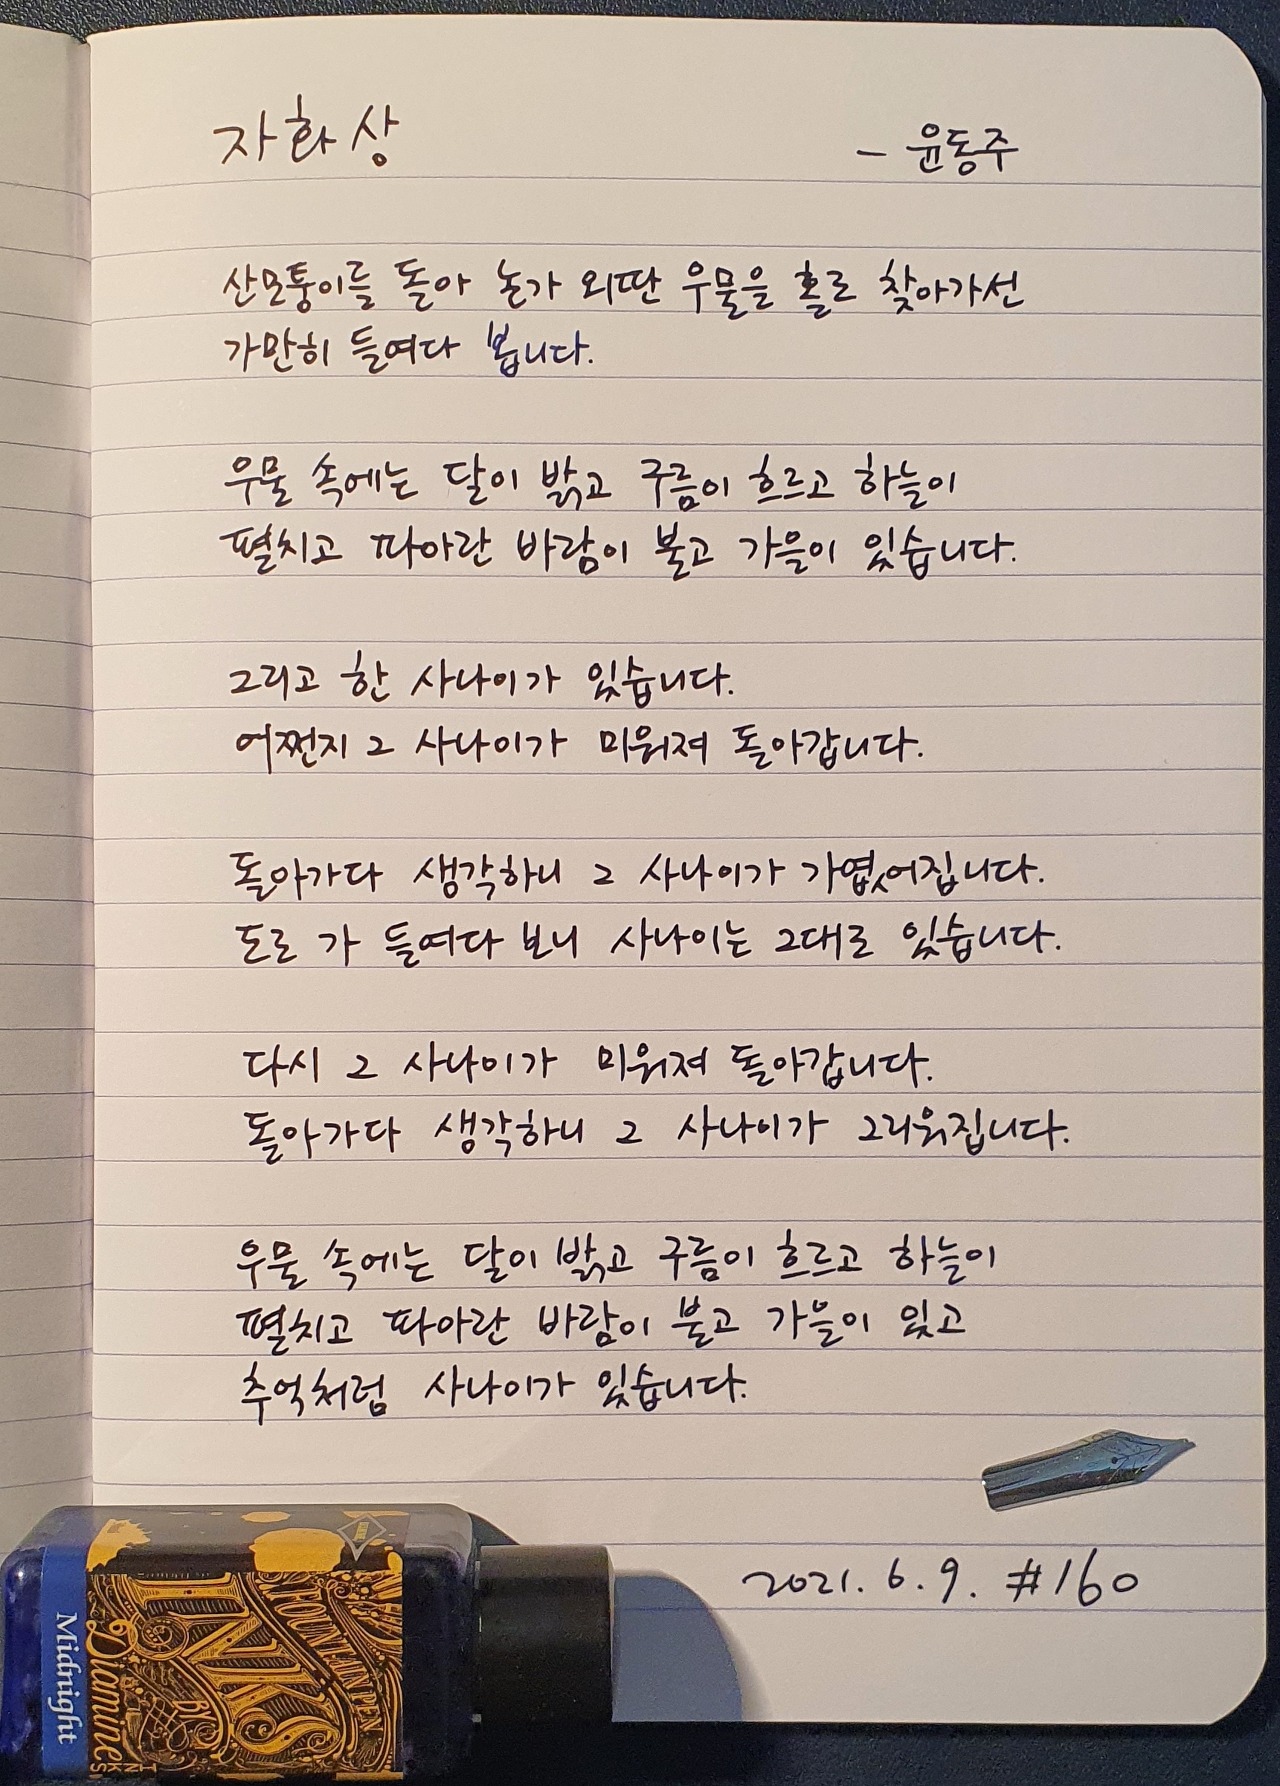 자화상 - 윤동주
산모퉁이를 돌아 논가 외딴 우물을 홀로 찾아가선
가만히 들여다 봅니다.
우물 속에는 달이 밝고 구름이 흐르고 하늘이
펼치고 파아란 바람이 불고 가을이 있습니다.
그리고 한 사나이가 있습니다.
어쩐지 그 사나이가 미워져 돌아갑니다.
돌아가다 생각하니 그 사나이가 가엾어집니다.
도로 가 들여다 보니 사나이는 그대로 있습니다.
다시 그 사나이가 미워져 돌아갑니다.
돌아가다 생각하니 그 사나이가 그리워집니다.
우물 속에는 달이 밝고 구름이 흐르고 하늘이
펼치고 파아란 바람이 불고 가을이 있고
추억처럼 사나이가 있습니다.
2021. 6. 9. #160
FOUNTAIN PEN
INKS
BY
Diamine
INKS
Midnight